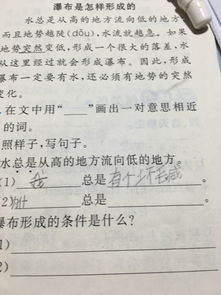 瀑布是怎样形成的
水总是从高的地方流向低的地方
而且地势越陡(dǒu),水流就越急。如果
地势突然变低,形成一个很大的落差,水
从这里经过就会形成瀑布。因此,形成
瀑布一定要有水,还必须有地势的突然
变化。
.在文中用“____”画出一对意思相近
的词。
照样子,写句子。
水总是从高的地方流向低的地方。
(1) 我 总是
(2) 总是 。
瀑布形成的条件是什么?
1)
2)